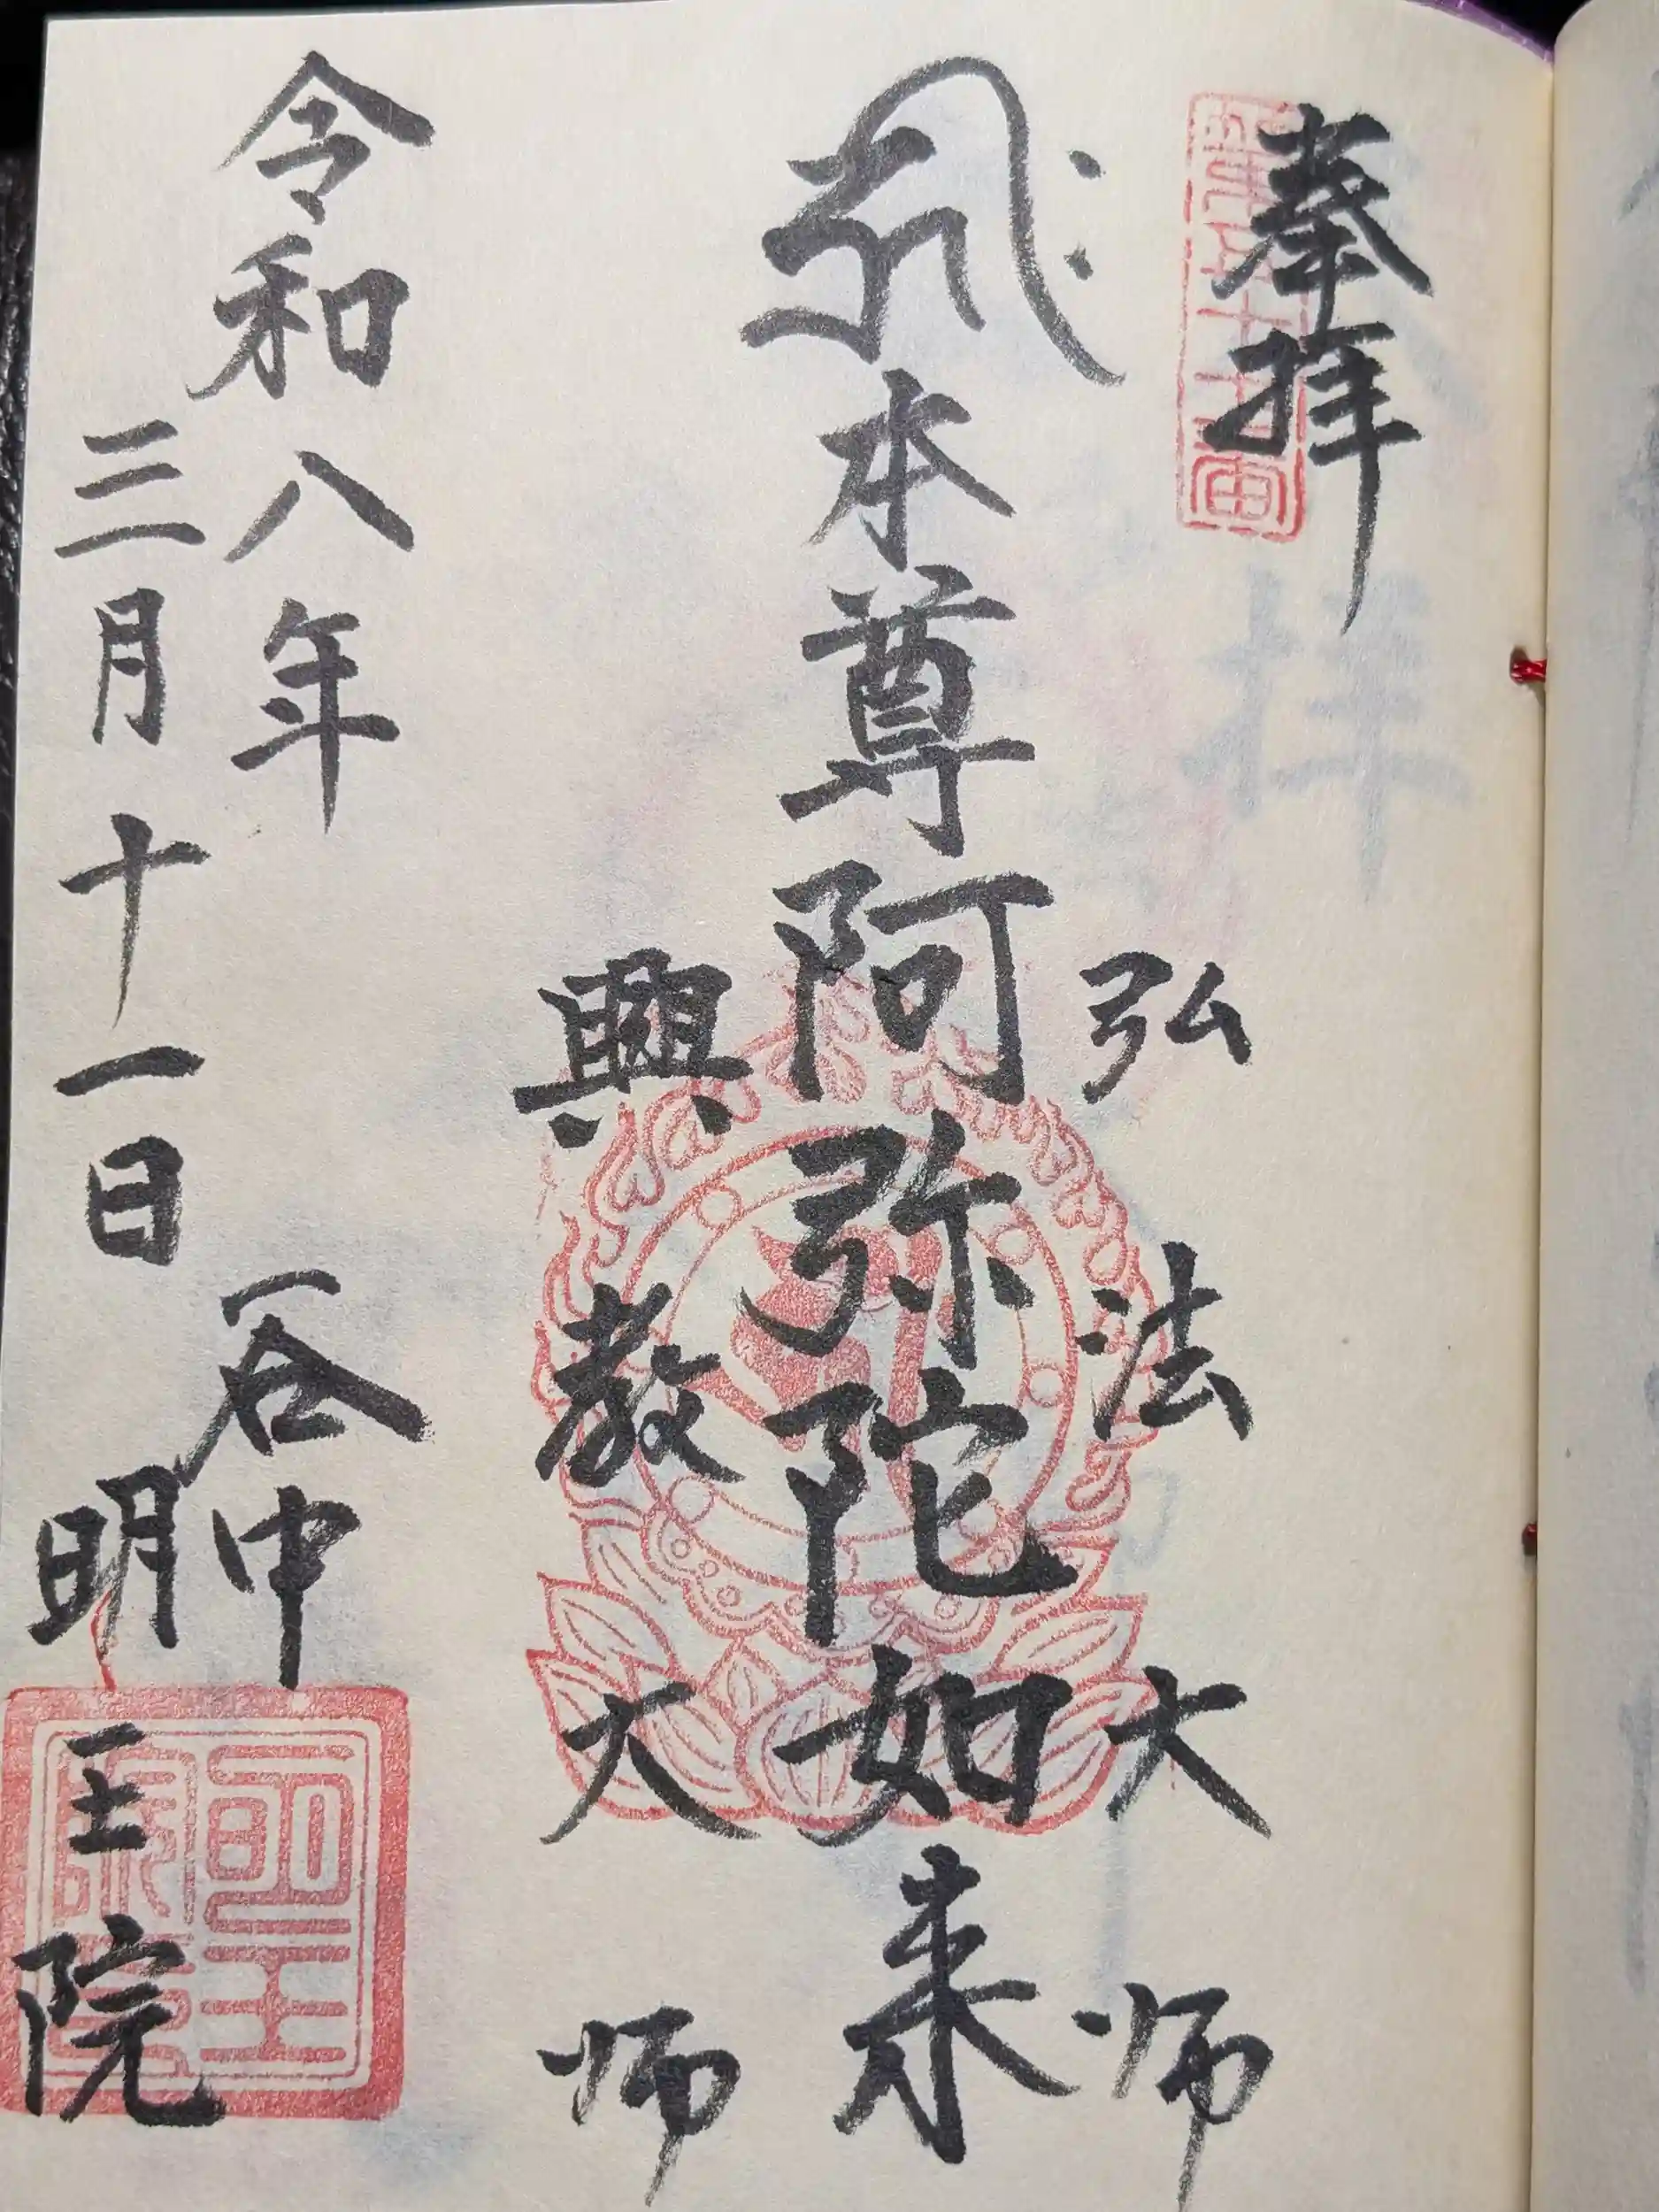 奉拝
弘法大师
本尊阿弥陀如来
興教大师
令和八年
三月十一日
谷中
明王院